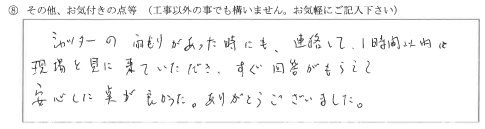 ⑧ その他、お気付きの点等 （工事以外の事でも構いません。お気軽にご記入下さい）
シャッターの雨もりがあった時にも、連絡して、1時間以内に
現場を見に来ていただき、すぐ回答がもらえて
安心した点が良かった。ありがとうございました。